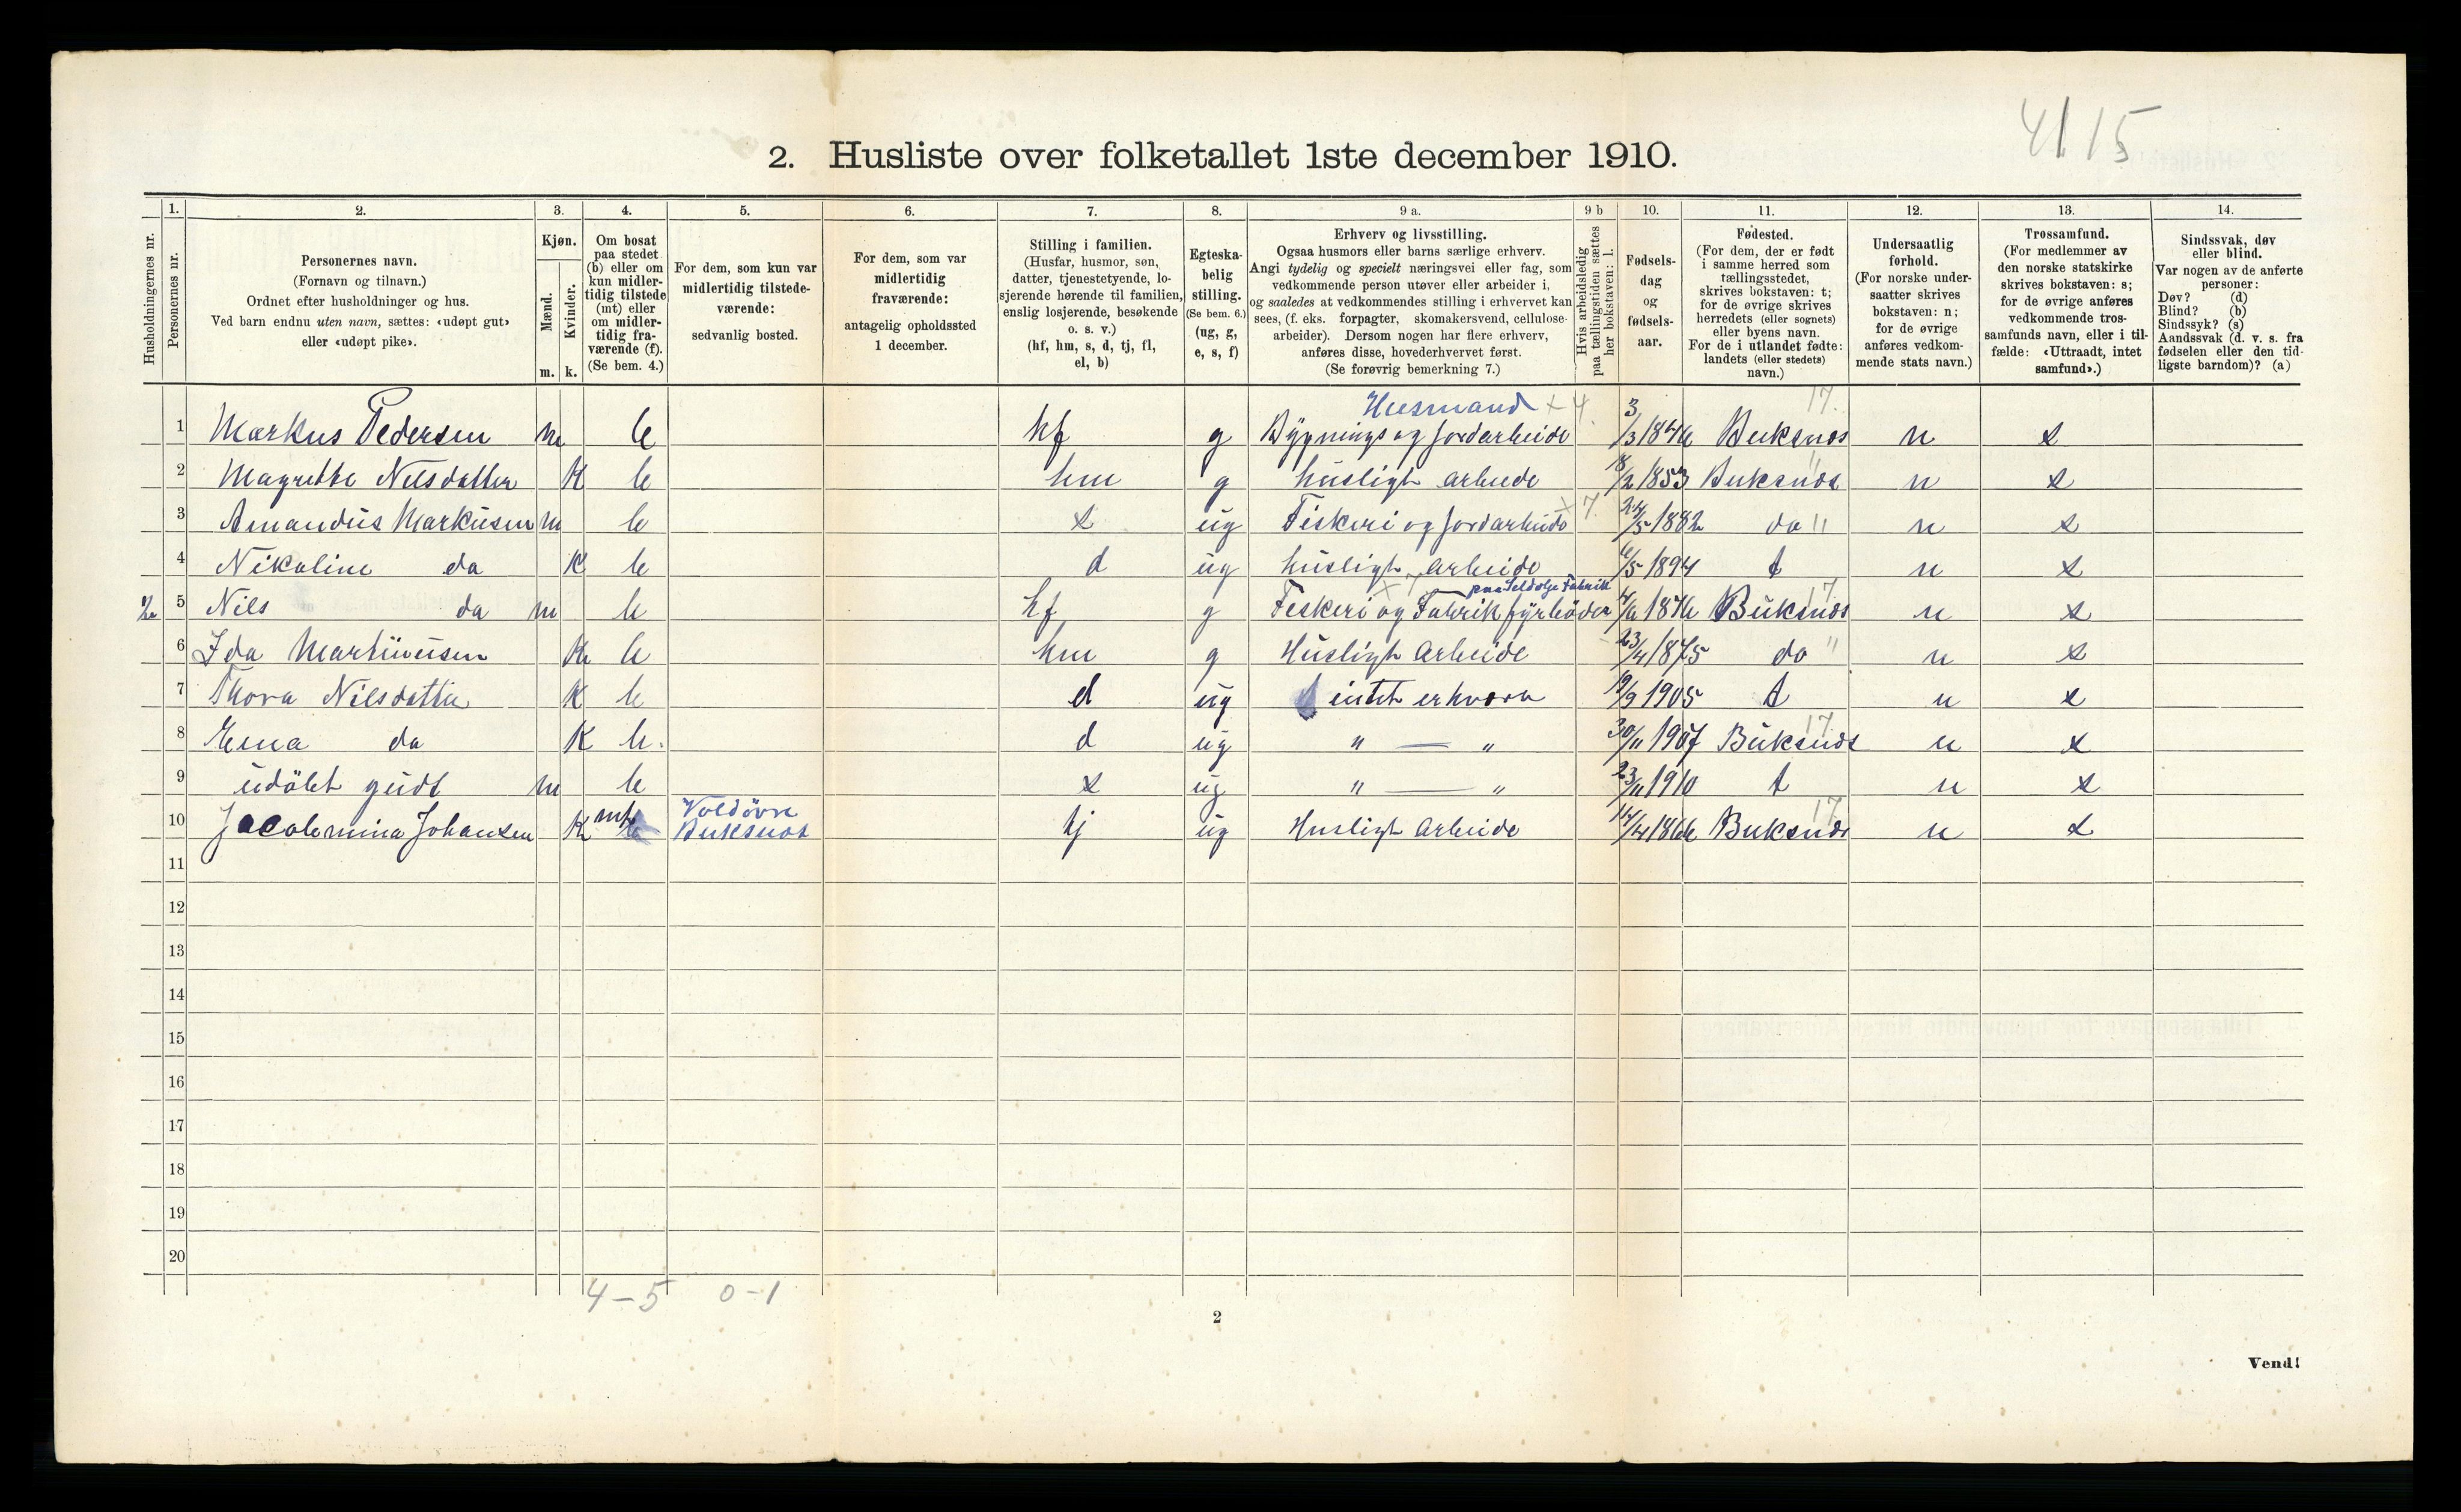 41 15
2. Husliste over folketallet 1ste december 1910.
Husholdningernes nr.
1.
Personernes nr.
2.
Personernes navn.
(Fornavn og tilnavn.)
Ordnet efter husholdninger og hus.
Ved barn endnu uten navn, sættes: «udøpt gut»
eller «udøpt pike».
3.
Kjøn.
Mænd.
Kvinder.
m. k.
4.
Om bosat
paa stedet
(b) eller om
kun midler-
tidig tilstede
(mt) eller
om midler-
tidig fra-
værende (f).
(Se bem. 4.)
5.
For dem, som kun var
midlertidig tilstede-
værende:
sedvanlig bosted.
6.
For dem, som var
midlertidig
fraværende:
antagelig opholdssted
1 december.
7.
Stilling i familien.
(Husfar, husmor, søn,
datter, tjenestetyende, lo-
sjerende hørende til familien,
enslig losjerende, besøkende
o. s. v.)
(hf, hm, s, d, tj, fl,
el, b)
8.
Egteska-
belig
stilling.
(Se bem. 6.)
(ug, g,
e, s, f)
9 a.
Erhverv og livsstilling.
Ogsaa husmors eller barns særlige erhverv.
Angi tydelig og specielt næringsvei eller fag, som
vedkommende person utøver eller arbeider i,
og saaledes at vedkommendes stilling i erhvervet kan
sees, (f. eks. forpagter, skomakersvend, cellulose-
arbeider). Dersom nogen har flere erhverv,
anføres disse, hovederhvervet først.
(Se forøvrig bemerkning 7.)
9 b
Hvis arbeidsledig
paa tællingstiden sættes
her bokstaven: l.
10.
Fødsels-
dag
og
fødsels-
aar.
11.
Fødested.
(For dem, der er født
i samme herred som
tællingsstedet,
skrives bokstaven: t;
for de øvrige skrives
herredets (eller sognets)
eller byens navn.
For de i utlandet fødte:
landets (eller stedets)
navn.)
12.
Undersaatlig
forhold.
(For norske under-
saatter skrives
bokstaven: n;
for de øvrige
anføres vedkom-
mende stats navn.)
13.
Trossamfund.
(For medlemmer av
den norske statskirke
skrives bokstaven: s;
for de øvrige anføres
vedkommende tros-
samfunds navn, eller i til-
fælde: «Uttraadt, intet
samfund».)
14.
Sindssvak, døv
eller blind.
Var nogen av de anførte
personer:
Døv? (d)
Blind? (b)
Sindssyk? (s)
Aandssvak (d. v. s. fra
fødselen eller den tid-
ligste barndom)? (a)
Husmand + 4 17.
1 Markus Pedersen m b hf g Bygnings og Jordarbeide 3/3 1846 Buksnes n s
2 Magrethe Nilsdatter K b hm g husligt arbeide 18/2 1853 Buksnes " n s
3 Amandus Markusen m b s ug Fiskeri og Jordarbeide + 7. 24/5 1882 do " n s
4 Nikoline do K b d ug husligt arbeide 6/5 1894 t n s
paa Sildolje Fabrik
2 5 Nils do m b hf g Feskeri og Fabrik fyrböder + 7 1876 Buksnes 17 n s
6 Ida Martinusen K b hm g Husligt Arbeide 23/4 1875 do " n s
7 Thora Nilsdatter K b d ug intet erhverv 19/9 1905 t n s
8 Erna do K b. d ug " — " 30/11 1907 Buksnes 17 n s
9 udöbt gudt m b s ug " — " 23/11 1910 t n s
Voldövre
10 Jacobmina Johansen K mt Buksnes tj ug Husligt Arbeide 14/4 1866 Buksnes 17 n s
11
12
13
14
15
16
17
18
19
20
4 – 5 0 – 1
2
Vend!